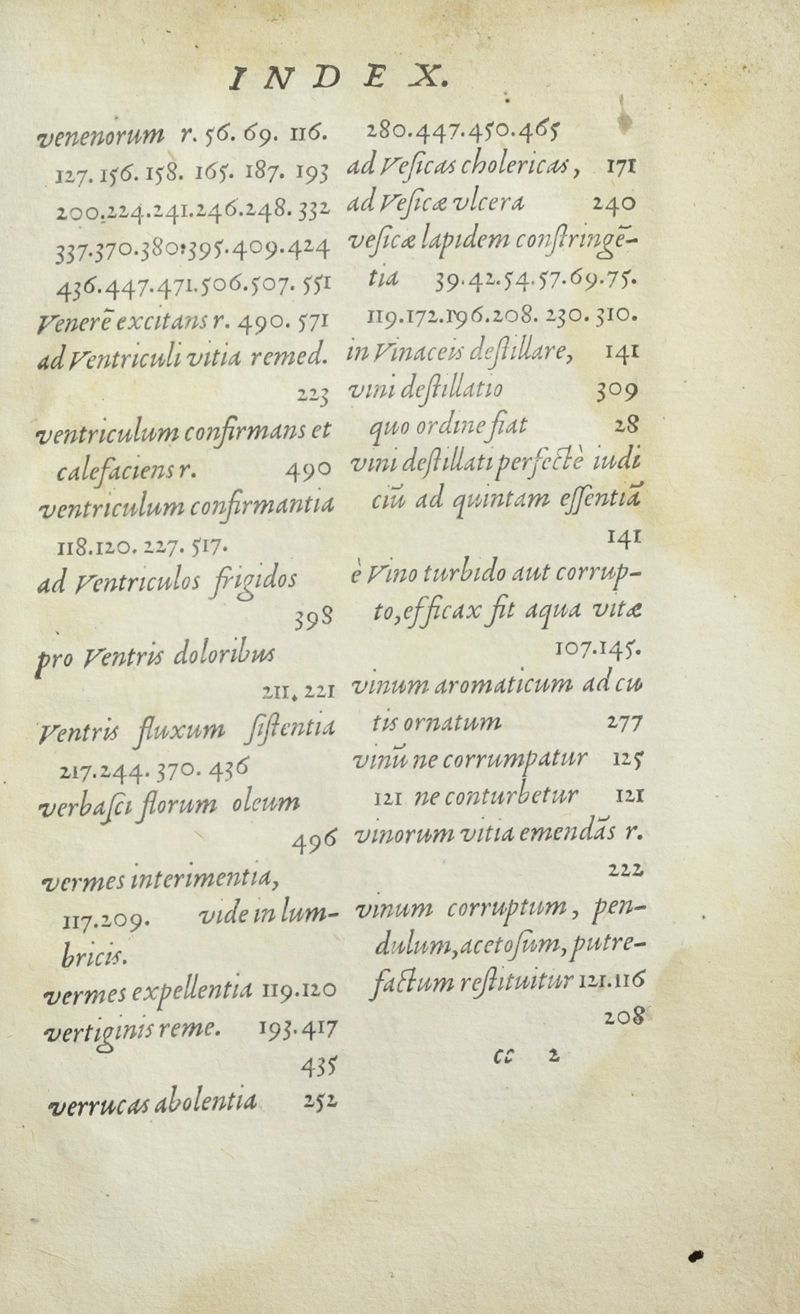 INDEX.
venenorum r. 56. 69. 116.
127. 156. 158. 165. 187. 193
200.224.241.246.248. 332
337.370.380.395.409.424
436.447.471.506.507. 551
Venerē excitans r. 490. 571
ad Ventriculi vitia remed.
223
ventriculum confirmans et
calefaciens r. 490
ventriculum confirmantia
118.120. 227. 517.
ad Ventriculos frigidos
398
pro Ventris doloribus
211. 221
Ventris fluxum ſiſtentia
217.244. 370. 436
verbaſci florum oleum
496
vermes interimentia,
117.209. vide in lum-
bricis.
vermes expellentia 119.120
vertiginis reme. 193.417
435
verrucas abolentia 252
280.447.450.465
ad Veſicas cholericas, 171
ad Veſicæ vlcera 240
veſicæ lapidem conſtringē-
tia 39.42.54.57.69.75.
119.172.196.208. 230. 310.
in Vinaceis deſtillare, 141
vini deſtillatio 309
quo ordine fiat 28
vini deſtillati perfectè iudi
ciū ad quintam eſſentiā
141
è Vino turbido aut corrup-
to, efficax fit aqua vitæ
107.145.
vinum aromaticum ad cu
tis ornatum 277
vinū ne corrumpatur 125
121 ne conturbetur 121
vinorum vitia emendās r.
222
vinum corruptum, pen-
dulum, acetoſum, putre-
factum reſtituitur 121.116
208
cc 2